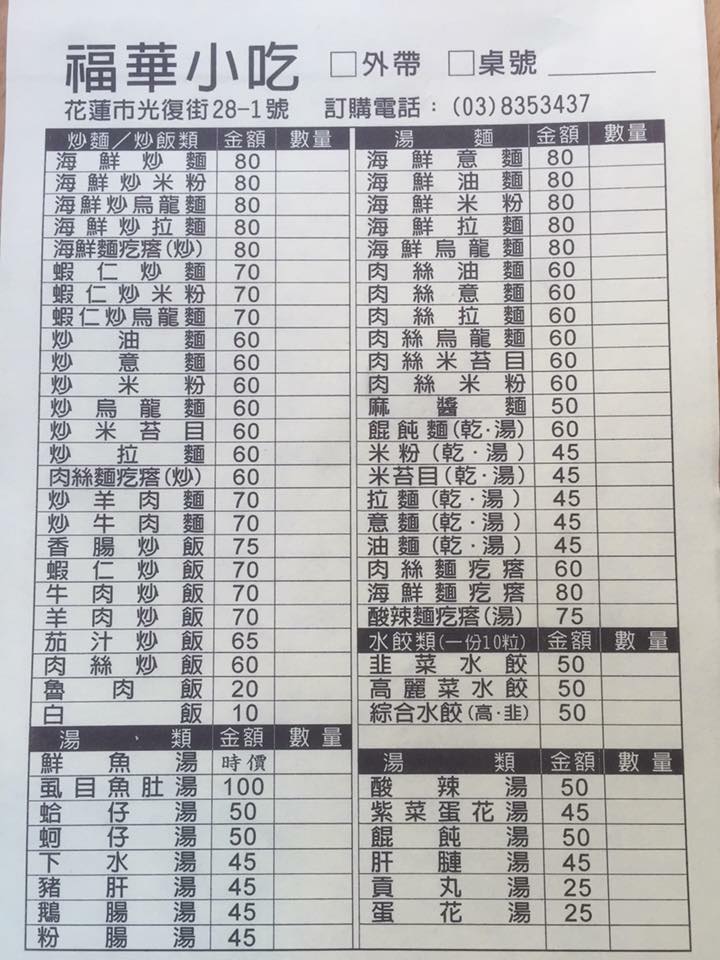 福華小吃 □外帶 □桌號
花蓮市光復街28-1號 訂購電話：(03)8353437
炒麵／炒飯類 金額 數量
海鮮炒麵 80
海鮮炒米粉 80
海鮮炒烏龍麵 80
海鮮炒拉麵 80
海鮮麵疙瘩(炒) 80
蝦仁炒麵 70
蝦仁炒米粉 70
蝦仁炒烏龍麵 70
炒油麵 60
炒意麵 60
炒米粉 60
炒烏龍麵 60
炒米苔目 60
炒拉麵 60
肉絲麵疙瘩(炒) 60
炒羊肉麵 70
炒牛肉麵 70
香腸炒飯 75
蝦仁炒飯 70
牛肉炒飯 70
羊肉炒飯 70
茄汁炒飯 65
肉絲炒飯 60
魯肉飯 20
白飯 10
湯、類 金額 數量
鮮魚湯 時價
虱目魚肚湯 100
蛤仔湯 50
蚵仔湯 50
下水湯 45
豬肝湯 45
鵝腸湯 45
粉腸湯 45
湯麵 金額 數量
海鮮意麵 80
海鮮油麵 80
海鮮米粉 80
海鮮拉麵 80
海鮮烏龍麵 80
肉絲油麵 60
肉絲意麵 60
肉絲拉麵 60
肉絲烏龍麵 60
肉絲米苔目 60
肉絲米粉 60
麻醬麵 50
餛飩麵(乾·湯) 60
米粉(乾·湯) 45
米苔目(乾·湯) 45
拉麵(乾·湯) 45
意麵(乾·湯) 45
油麵(乾·湯) 45
肉絲麵疙瘩 60
海鮮麵疙瘩 80
酸辣麵疙瘩(湯) 75
水餃類(一份10粒) 金額 數量
韭菜水餃 50
高麗菜水餃 50
綜合水餃(高·韭) 50
湯類 金額 數量
酸辣湯 50
紫菜蛋花湯 45
餛飩湯 50
肝膁湯 45
貢丸湯 25
蛋花湯 25